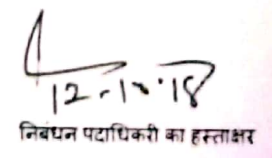 12-10-18
निबंधन पदाधिकरी का हस्ताक्षर